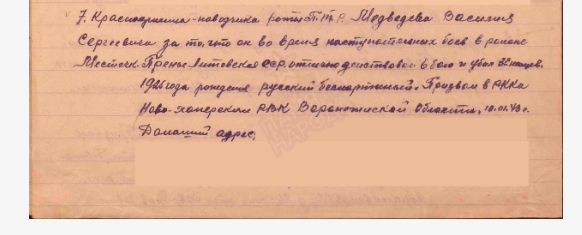 7. Красноармейца-наводчика роты ПТР. Медведева Василия
Сергеевича за то, что он во время наступательных боев в районе
Местечк. Прены Литовская ССР отлично действовал в бою и убил немцев.
1925 года рождения русский беспартийный. Призван в РККА
Ново-хоперским РВК Воронежской области, 10.01.43 г.
Домаший адрес: